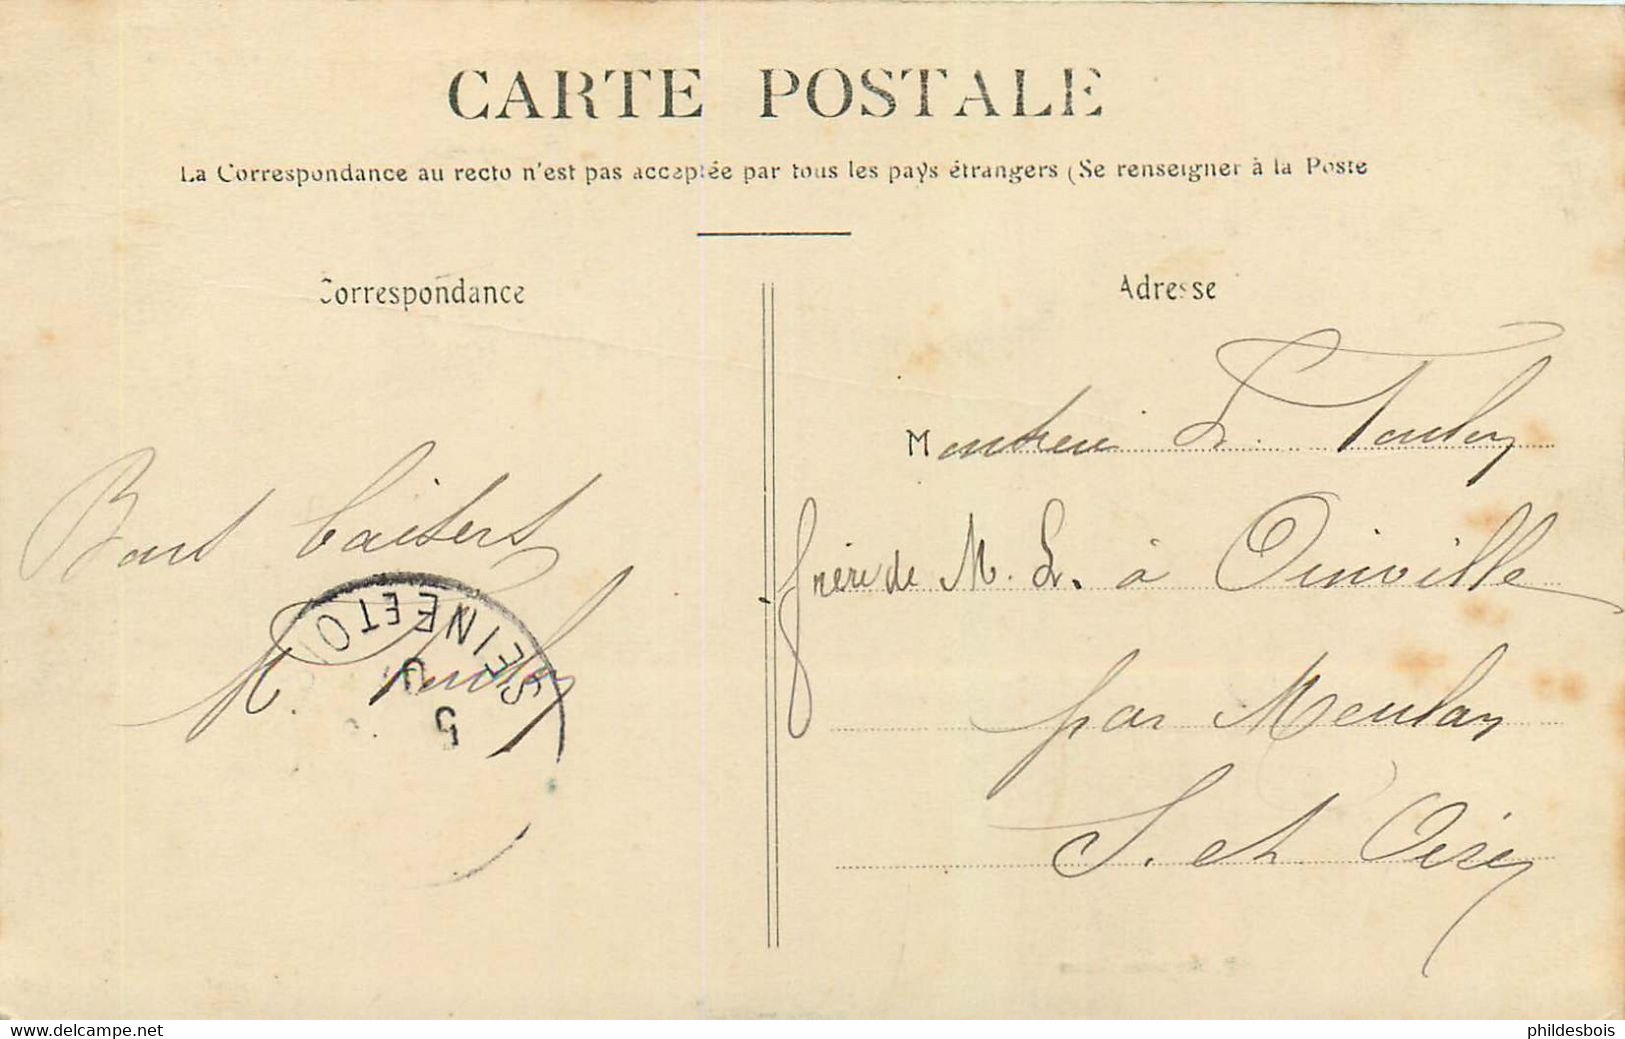 CARTE POSTALE
La Correspondance au recto n'est pas acceptée par tous les pays étrangers (Se renseigner à la Poste
Correspondance
Adresse
Monsieur L. Toulay
frère de M. L. à Oinville
par Meulan
S. et Oise
Bons baisers
M.
SEINE ET O
5
www.delcampe.net
phildesbois